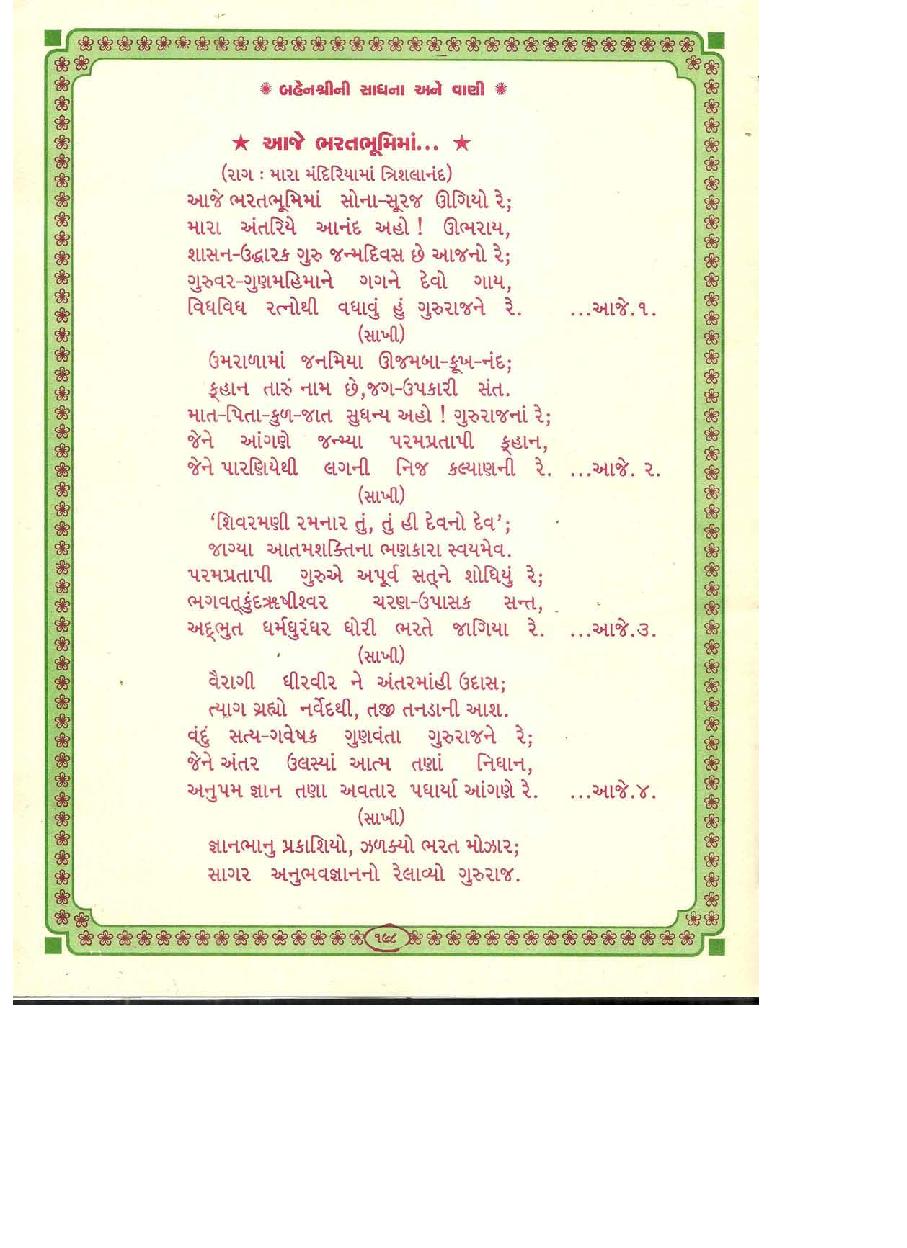 ✺ બહેનશ્રીની સાધના અને વાણી ✺
★ આજે ભરતભૂમિમાં... ★
(રાગ : મારા મંદિરિયામાં ત્રિશલાનંદ)
આજે ભરતભૂમિમાં સોના-સૂરજ ઊગિયો રે;
મારા અંતરિયે આનંદ અહો ! ઊભરાય,
શાસન-ઉદ્ધારક ગુરુ જન્મદિવસ છે આજનો રે;
ગુરુવર-ગુણમહિમાને ગગને દેવો ગાય,
વિધવિધ રત્નોથી વધાવું હું ગુરુરાજને રે. ...આજે.૧.
(સાખી)
ઉમરાળામાં જનમિયા ઊજમબા-કૂખ-નંદ;
ક્હાન તારું નામ છે,જગ-ઉપકારી સંત.
માત-પિતા-કુળ-જાત સુધન્ય અહો ! ગુરુરાજનાં રે;
જેને આંગણે જન્મ્યા પરમપ્રતાપી ક્હાન,
જેને પારણિયેથી લગની નિજ કલ્યાણની રે. ...આજે. ૨.
(સાખી)
‘શિવરમણી રમનાર તું, તું હી દેવનો દેવ’;
જાગ્યા આતમશક્તિના ભણકારા સ્વયમેવ.
પરમપ્રતાપી ગુરુએ અપૂર્વ સત્‌ને શોધિયું રે;
ભગવત્‌કુંદઋષીશ્વર ચરણ-ઉપાસક સન્ત,
અદ્‌ભુત ધર્મધુરંધર ધોરી ભરતે જાગિયા રે. ...આજે.૩.
(સાખી)
વૈરાગી ધીરવીર ને અંતરમાંહી ઉદાસ;
ત્યાગ ગ્રહ્યો નર્વેદથી, તજી તનડાની આશ.
વંદું સત્ય-ગવેષક ગુણવંતા ગુરુરાજને રે;
જેને અંતર ઉલસ્યાં આત્મ તણાં નિધાન,
અનુપમ જ્ઞાન તણા અવતાર પધાર્યા આંગણે રે. ...આજે.૪.
(સાખી)
જ્ઞાનભાનુ પ્રકાશિયો, ઝળક્યો ભરત મોઝાર;
સાગર અનુભવજ્ઞાનનો રેલાવ્યો ગુરુરાજ.
૧૯૮